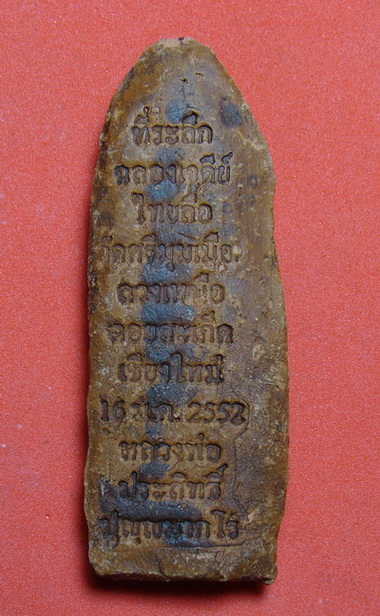 ที่ระลึก
ฉลองเจดีย์
ไทยลื้อ
วัดศรีมุงเมือง
ลวงเหนือ
ดอยสะเก็ด
เชียงใหม่
16 ม.ค. 2552
หลวงพ่อ
ประสิทธิ์
ปุญฺญมากโร